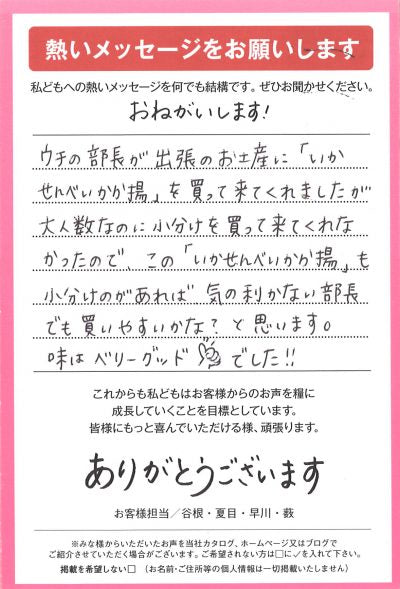 熱いメッセージをお願いします
私どもへの熱いメッセージを何でも結構です。ぜひお聞かせください。
おねがいします!
ウチの部長が出張のお土産に「いか
せんべいかか揚」を買って来てくれましたが
大人数なのに小分けを買って来てくれな
かったので、この「いかせんべいかか揚」も
小分けのがあれば気の利かない部長
でも買いやすいかな?と思います。
味はベリーグッドでした!!
これからも私どもはお客様からのお声を糧に
成長していくことを目標としています。
皆様にもっと喜んでいただける様、頑張ります。
ありがとうございます
お客様担当/谷根・夏目・早川・薮
※みな様からいただいたお声を当社カタログ、ホームページ又はブログで
ご紹介させていただく場合がございます。ご希望されない方は□に✓を入れて下さい。
掲載を希望しない□ (お名前・ご住所等の個人情報は一切掲載いたしません)